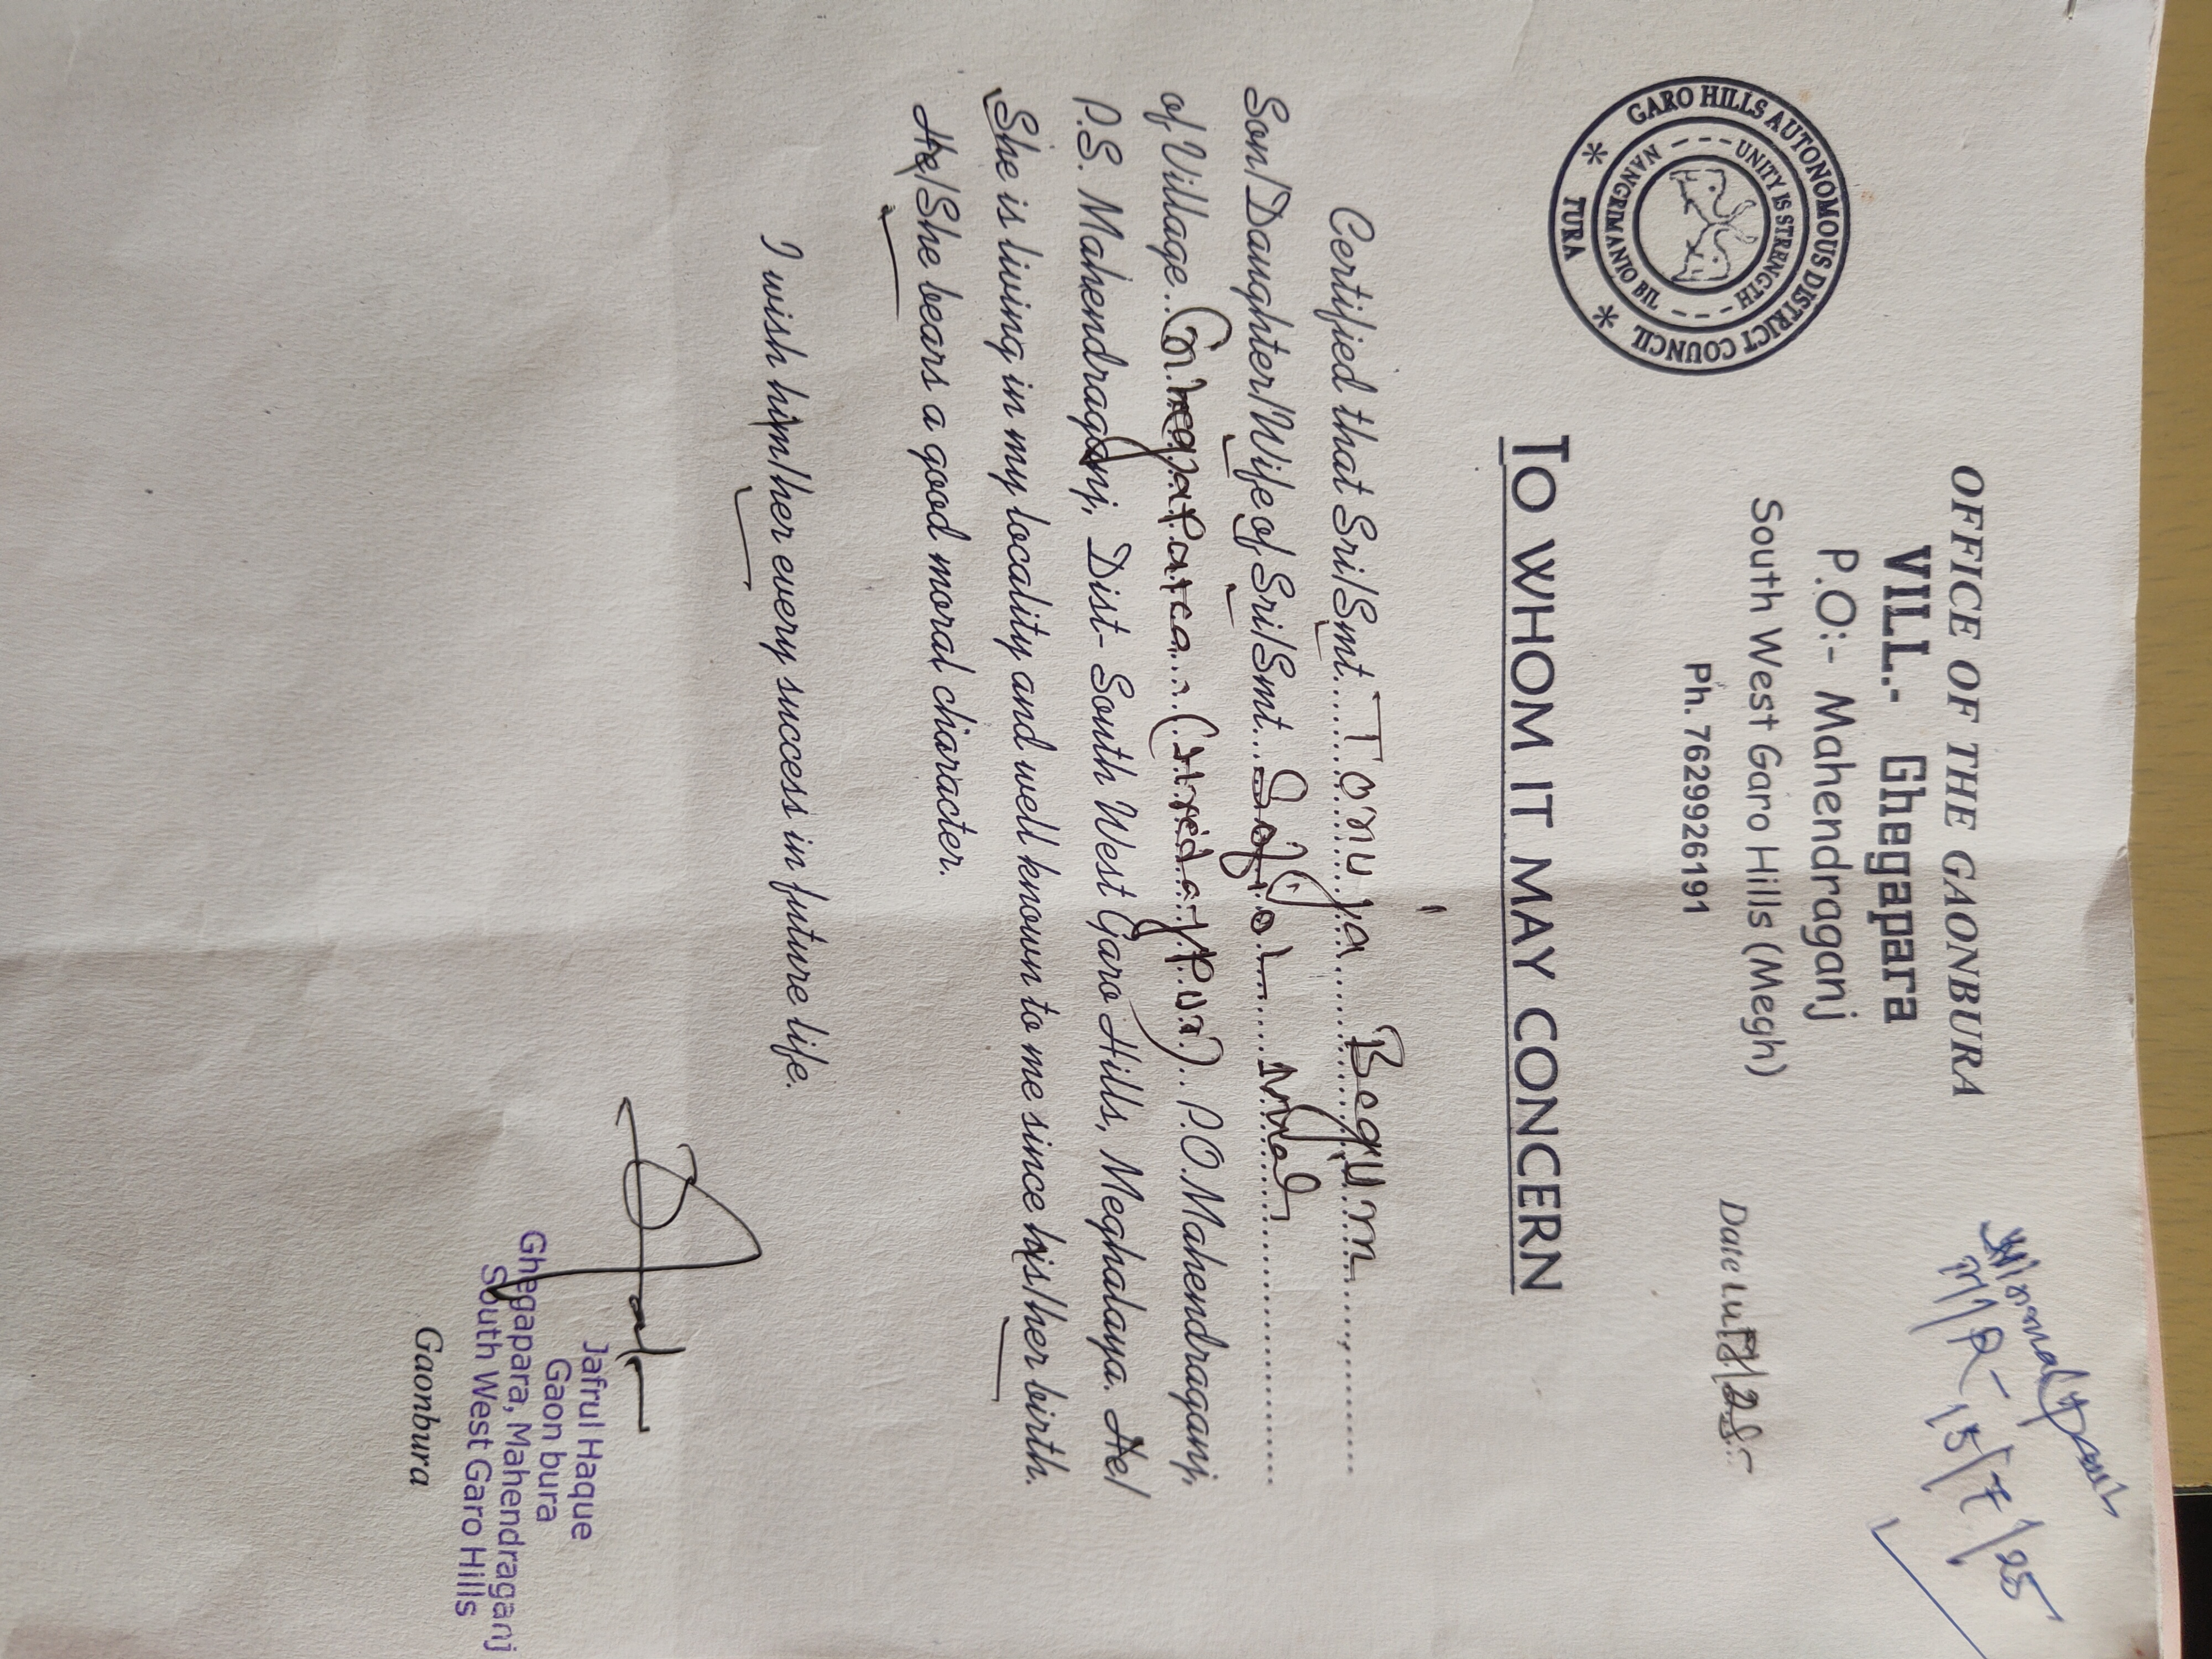 OFFICE OF THE GAONBURA
VILL.- Ghegapara
P.O:- Mahendraganj
South West Garo Hills (Megh)
Ph. 7629926191
GARO HILLS AUTONOMOUS DISTRICT COUNCIL
* TURA *
UNITY IS STRENGTH
NANGRIMANO BIL
15/7/25
Date
TO WHOM IT MAY CONCERN
Certified that Sri/Smt. Tonuja Begum
Son/Daughter/Wife of Sri/Smt.
of Village P.O. Mahendraganj,
P.S. Mahendraganj, Dist- South West Garo Hills, Meghalaya. He/
She is living in my locality and well known to me since his/her birth.
He/She bears a good moral character.
I wish him/her every success in future life.
Jafrul Haque
Gaon bura
Ghegapara, Mahendraganj
South West Garo Hills
Gaonbura